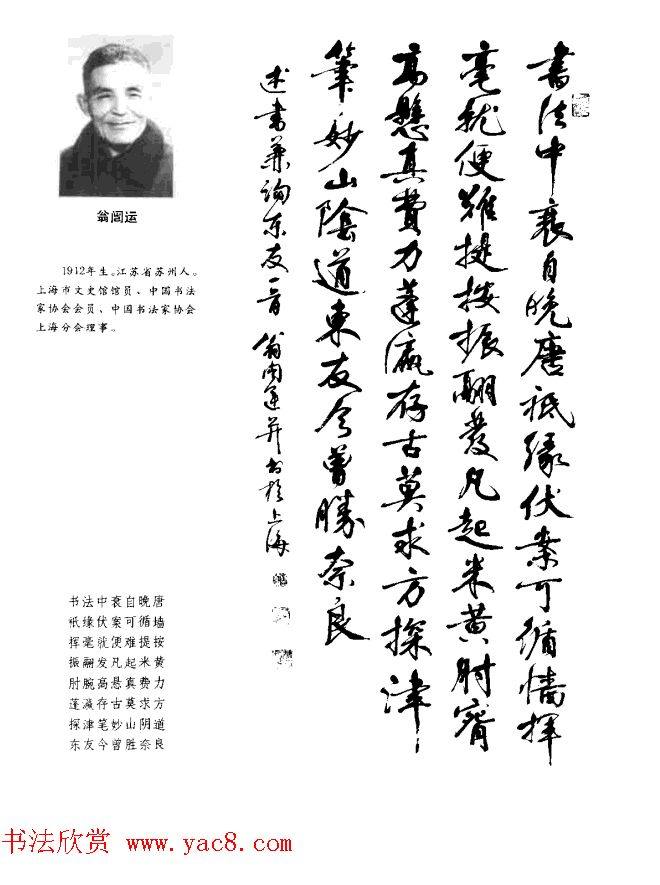 書法中衰自晚唐祗緣伏案可循墻揮
毫就便難提按振翮發凡起米黄肘腕
高懸真費力蓬瀛存古莫求方探津
筆妙山陰道東友今曾勝奈良
述書兼詢东友一首 翁闿運并书於上海
翁闿运
1912年生。江苏省苏州人。
上海市文史馆馆员、中国书法
家协会会员、中国书法家协会
上海分会理事。
书法中衰自晚唐
祇缘伏案可循墙
挥毫就便难提按
振翮发凡起米黄
肘腕高悬真费力
蓬瀛存古莫求方
探津笔妙山阴道
东友今曾胜奈良
书法欣赏 www.yac8.com